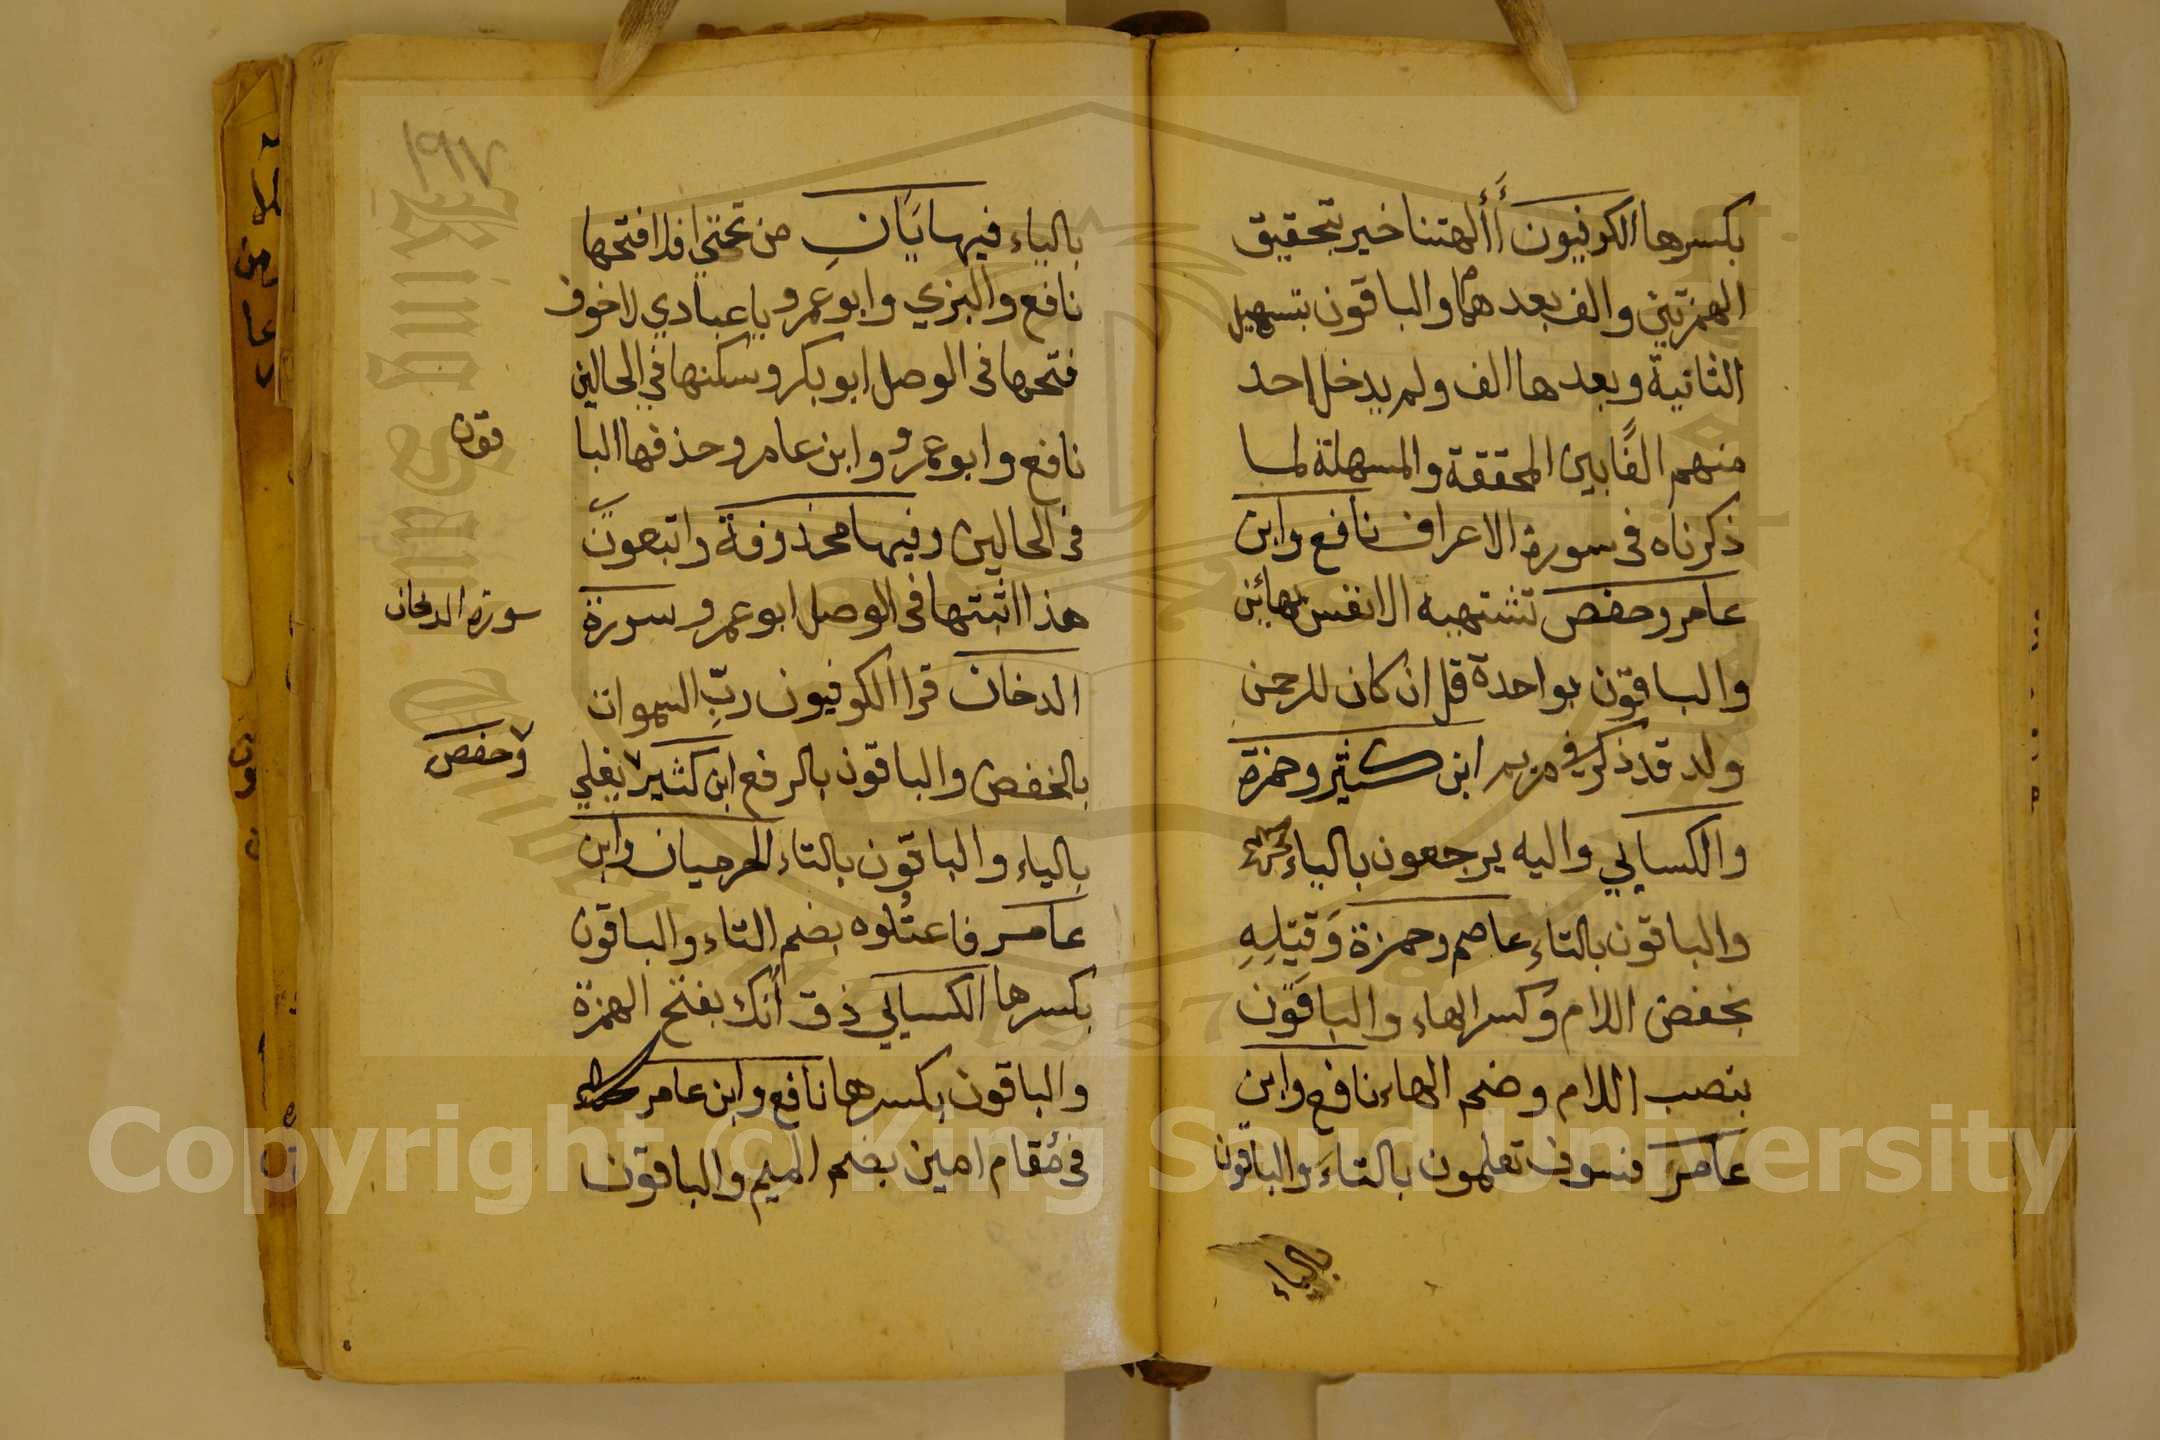 بكسرها الكوفيون أَأَلهتنا خير بتحقيق
الهمزتين والف بعدهما والباقون بتسهيل
الثانية وبعدها الف ولم يدخل احد
منهم الفًا بين المحققة والمسهلة لما
ذكرناه في سورة الاعراف نافع وابن
عامر وحفص تشتهيه الانفس بهائين
والباقون بواحدة قل ان كان للرحمن
ولد قد ذكر في مريم ابن كثير وحمزة
والكسايي واليه يرجعون بالياء
والباقون بالتاء عاصم وحمزة وَقيلِهِ
بخفض اللام وكسر الهاء والباقون
بنصب اللام وضم الهاء نافع وابن
عامر فسوف تعلمون بالتاء والباقون
بالياء
بالياء فيها يَانِ من تحتي افلا فتحها
نافع والبزي وابو عمرو يا عبادي لا خوف
فتحها في الوصل ابو بكر وسكنها في الحالين
نافع وابو عمرو وابن عامر وحذفها البا
قون
في الحالين وفيها محذوفة واتبعون
هذا اثبتها في الوصل ابو عمرو سورة
سورة الدخان
الدخان قرا الكوفيون ربِّ السموات
بالخفض والباقون بالرفع ابن كثير يغلي
وحفص
بالياء والباقون بالتاء الحرميان وابن
عامر فاعتُلوه بضم التاء والباقون
بكسرها الكسايي ذق أَنك بفتح الهمزة
والباقون بكسرها نافع وابن عامر
في مُقام امين بضم الميم والباقون
Copyright © King Saud University